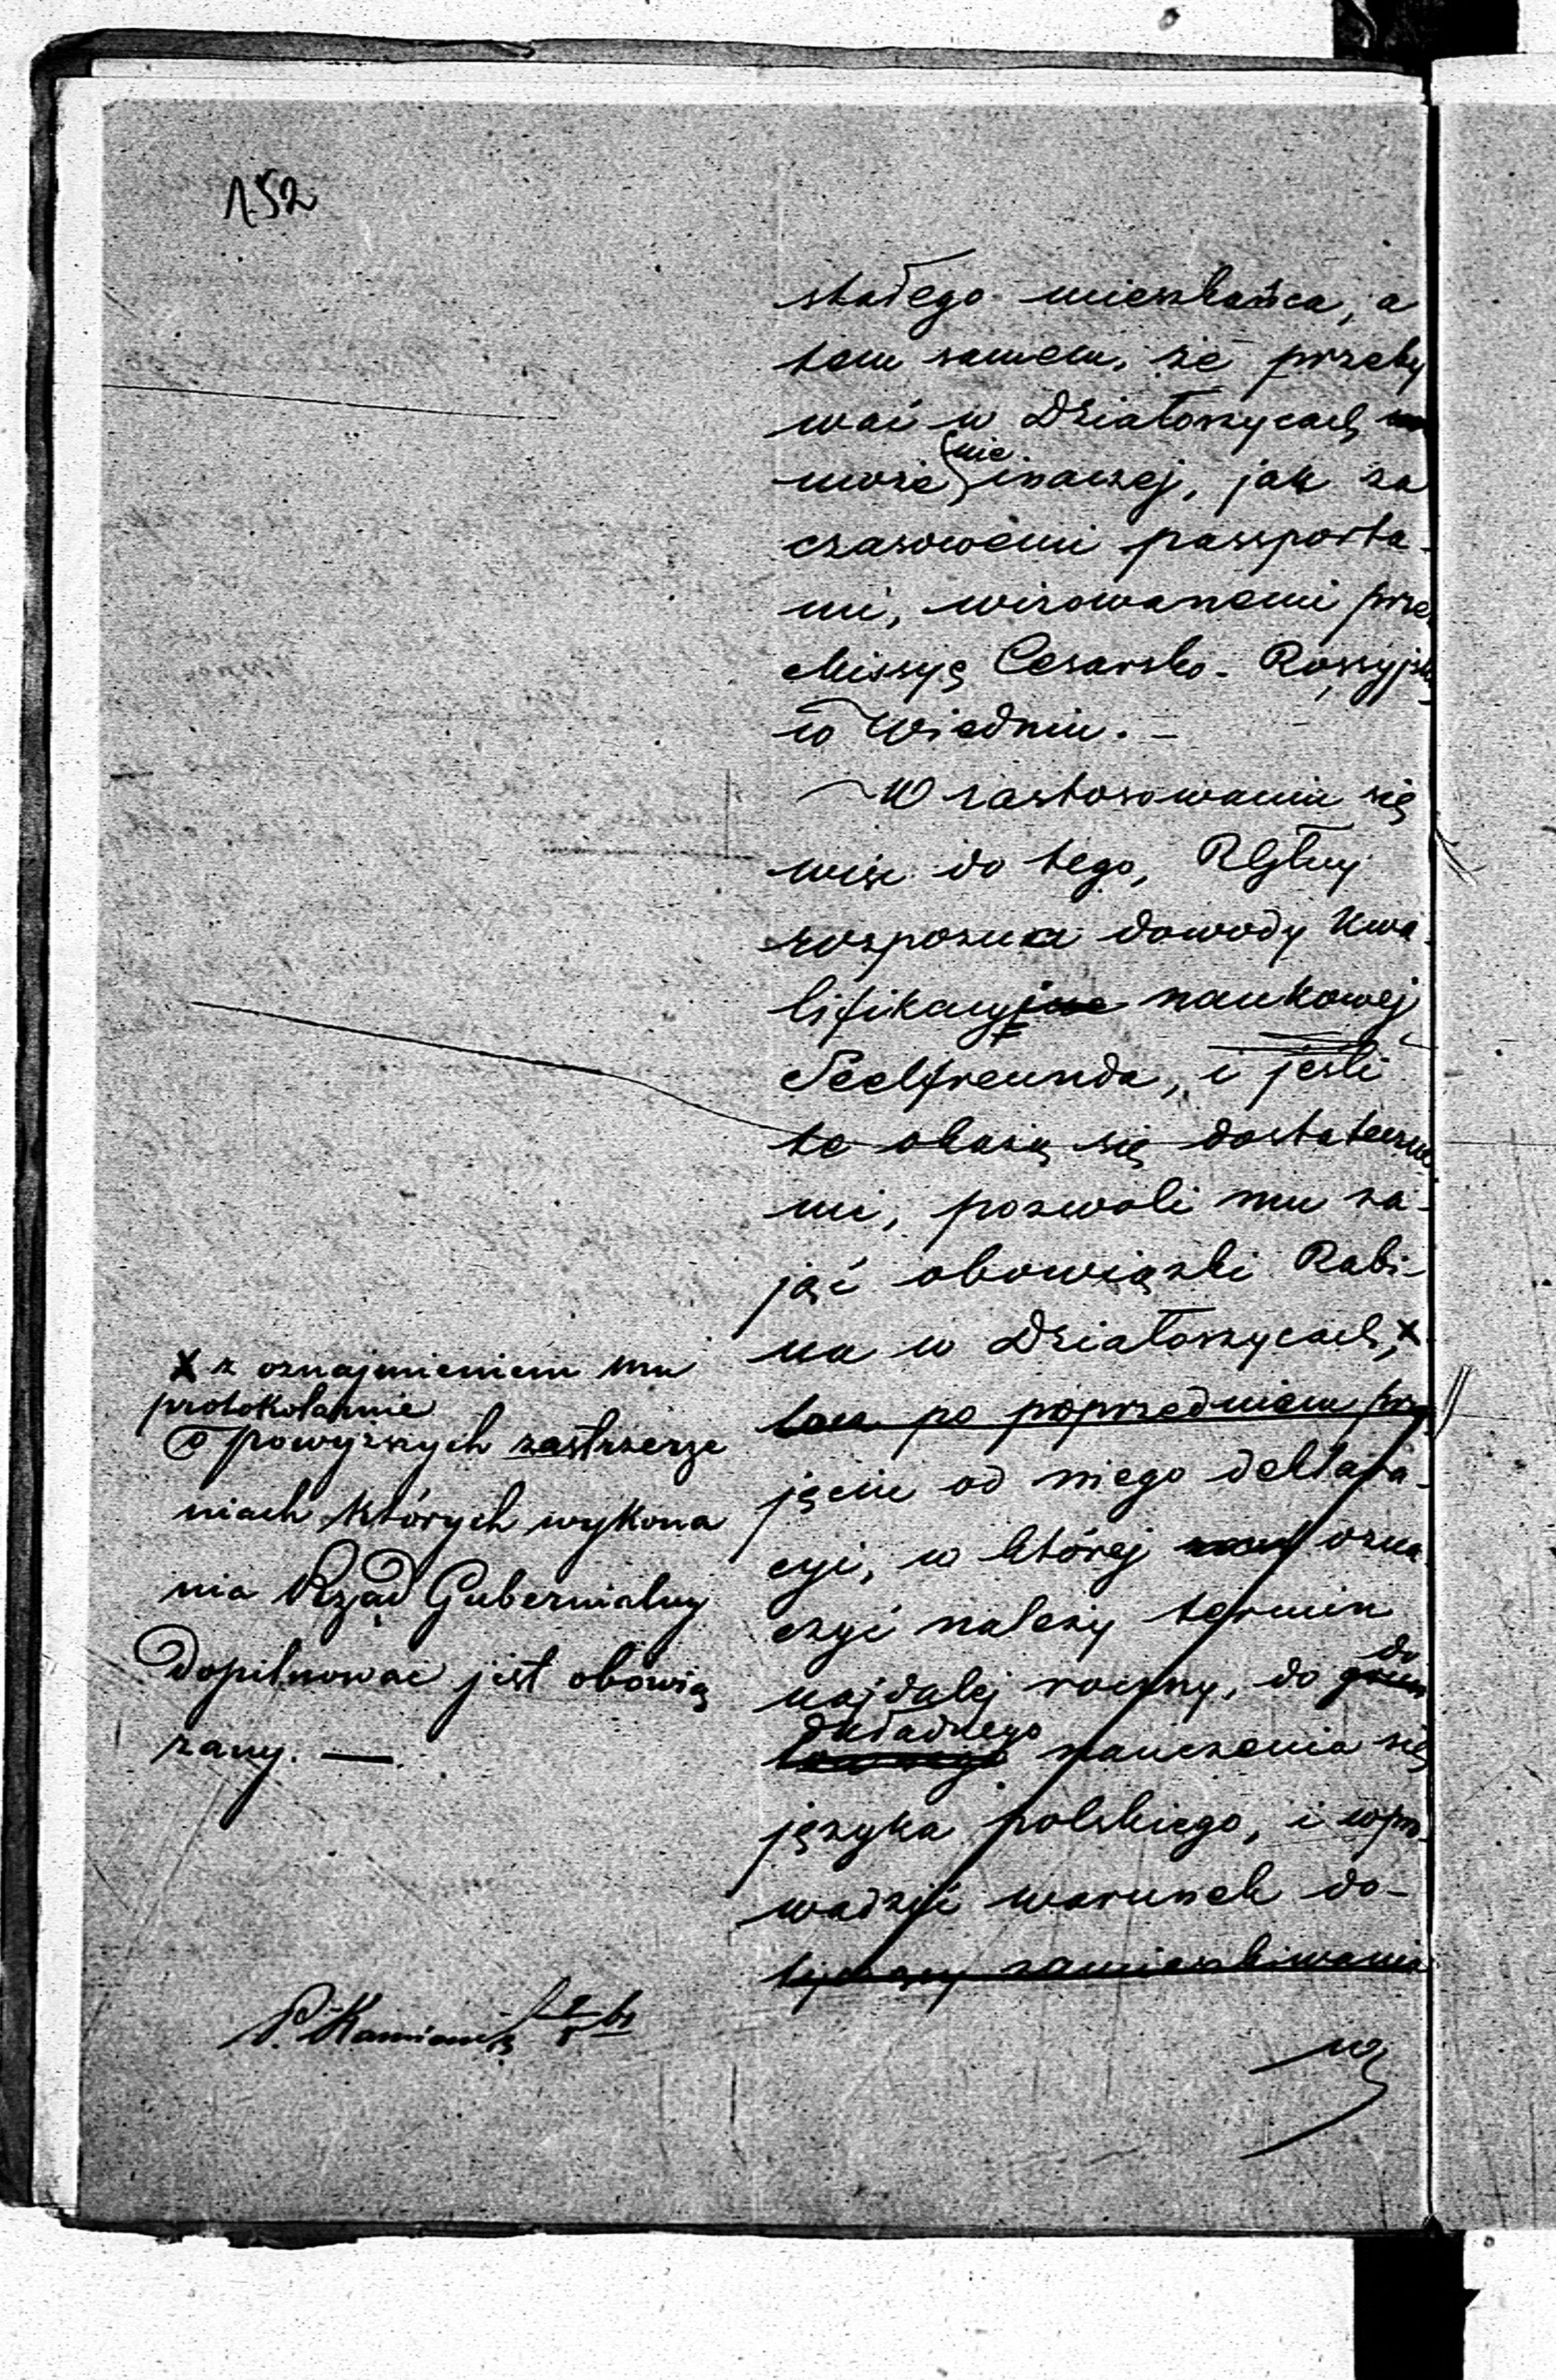 152
stałego mieszkańca, a
tem samem, że przeby
wać w Działoszycach
może nie inaczej, jak za
czasowemi passporta-
mi, wizowanemi przez
Missyę Cesarsko-Rossyjską
w Wiedniu. -
W zastosowaniu się
więc do tego, RGłny
rozpozna dowody kwa-
lifikacyi naukowej
Seelfreunda, i jeśli
te okażą się dostateczne
mi, pozwoli mu za-
jąć obowiązki Rabi-
na w Działoszycach, x
po poprzedniem przy
jęciu od niego deklara-
cyi, w której ozna
czyć należy termin
najdalej roczny, do do
kładnego nauczenia się
języka polskiego, i wpro-
wadzić warunek do-
tyczący zamieszkiwania
x z oznajmieniem mu
protokolarnie
o powyższych zastrzeże
niach których wykona
nia Rząd Gubernialny
dopilnować jest obowią
zany. —